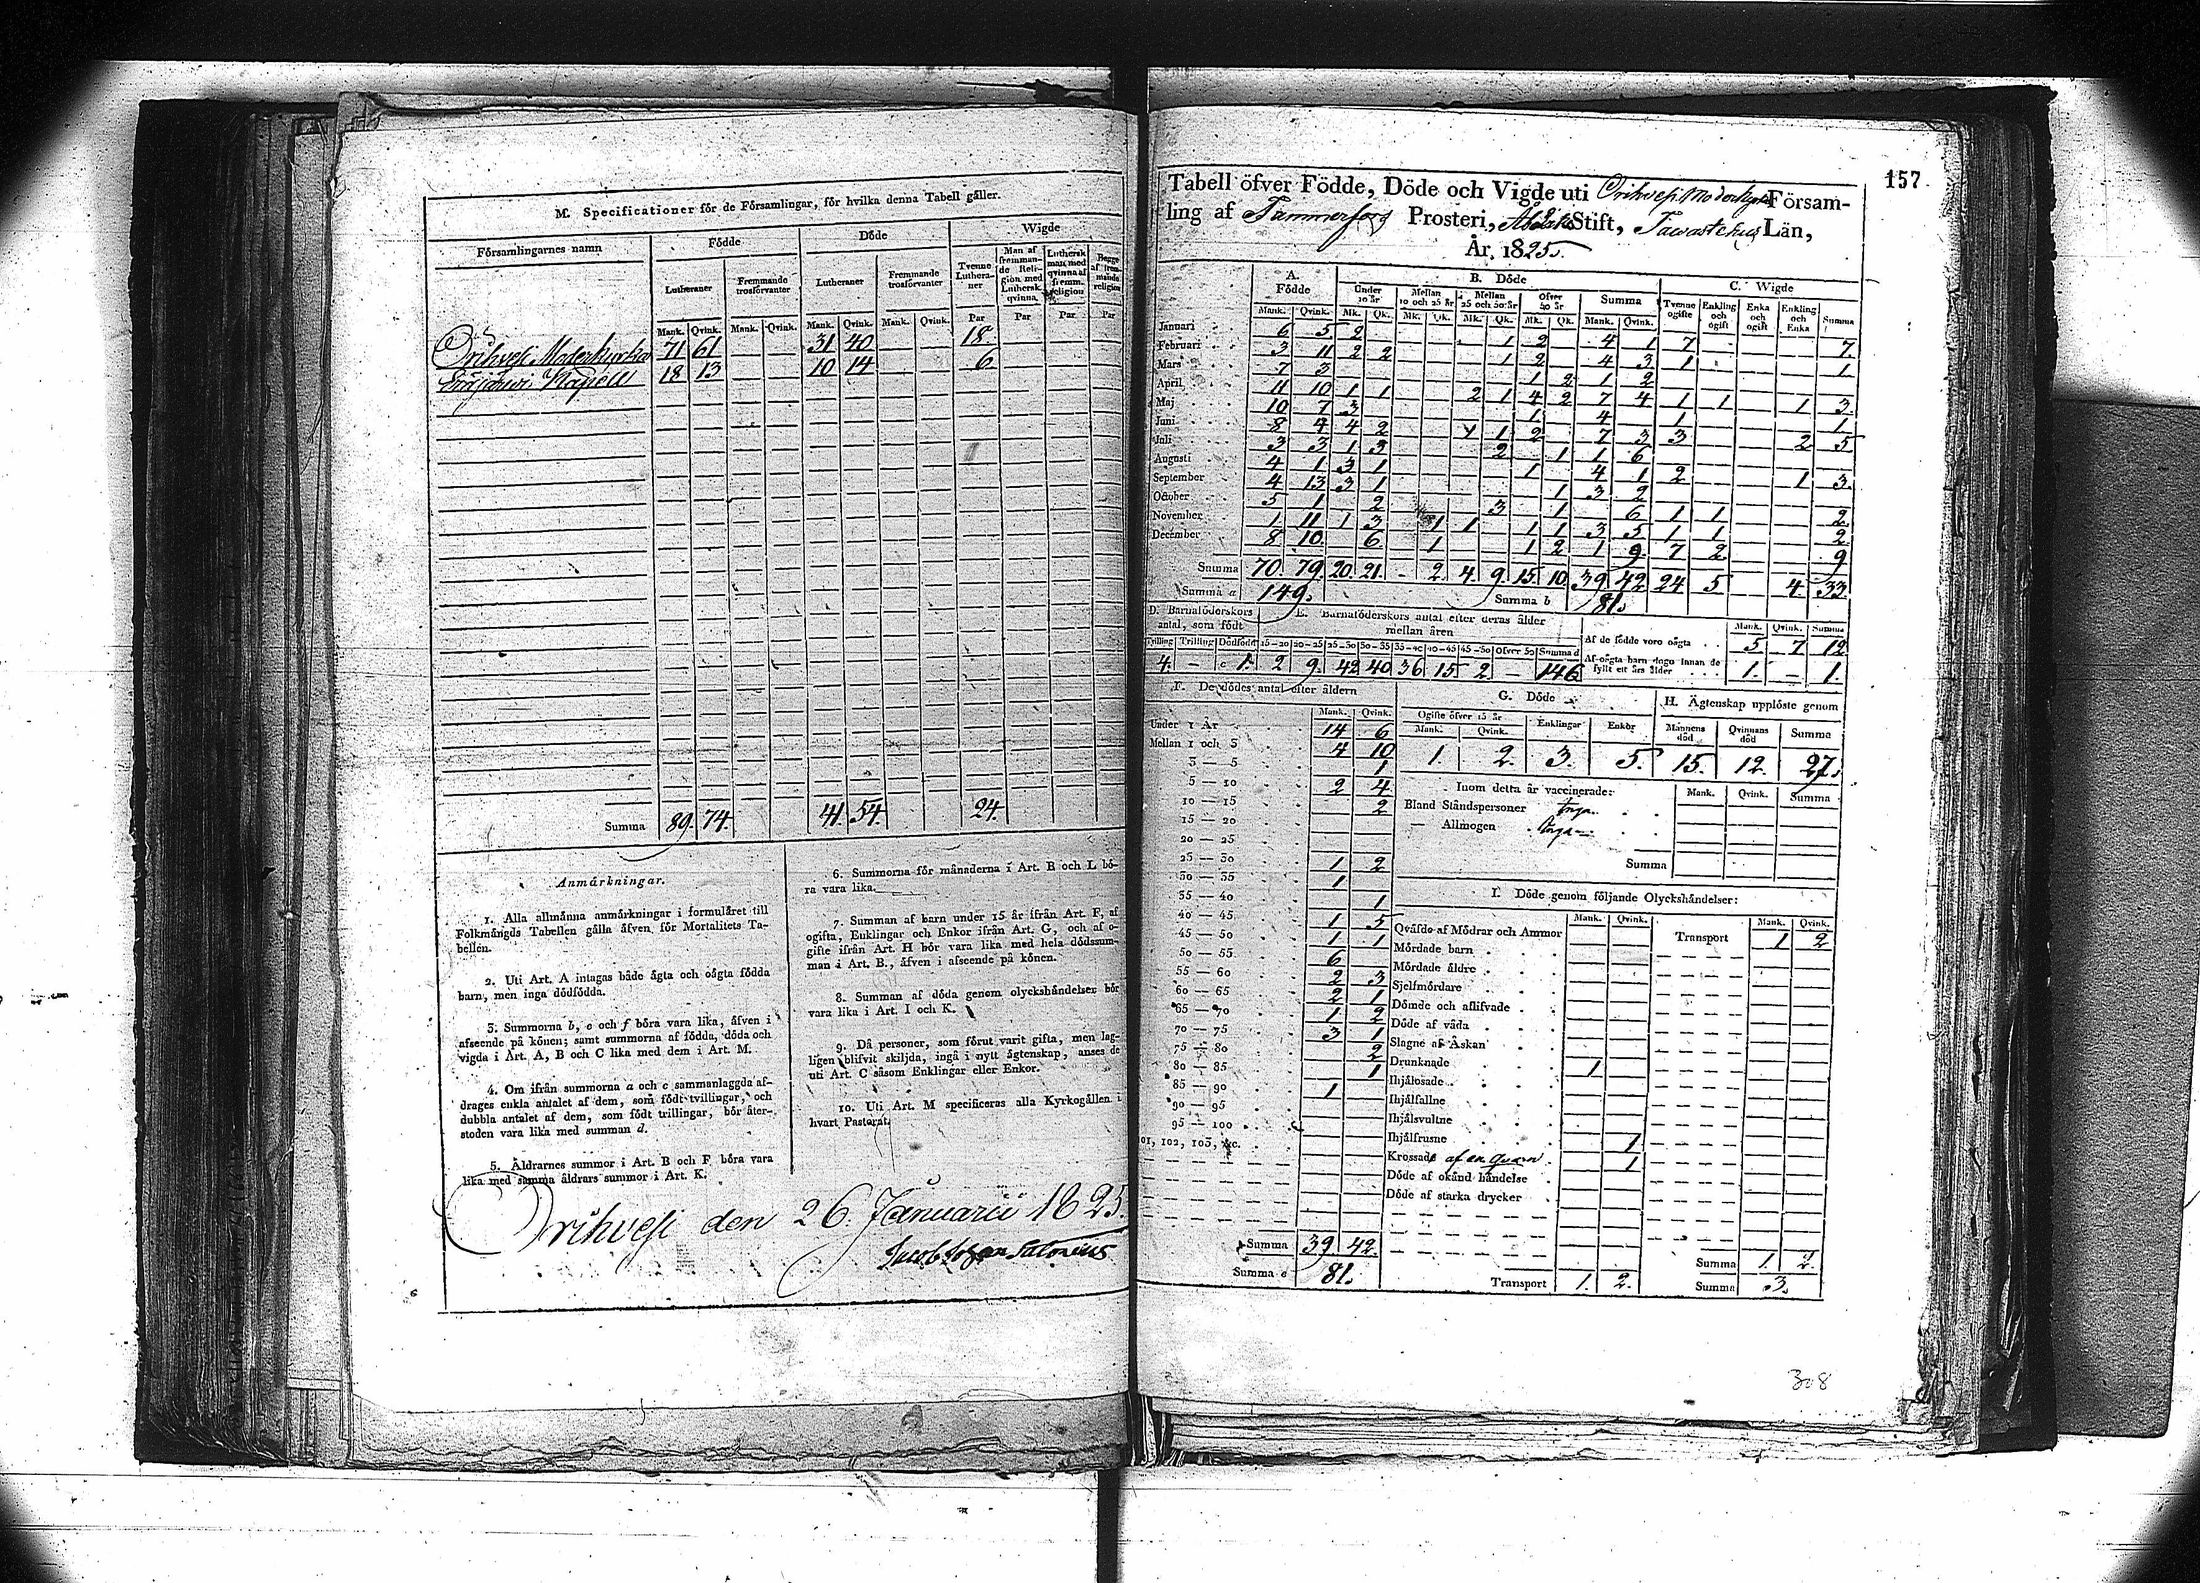 M. Specificationer för de Församlingar, för hvilka denna Tabell gäller.
Församlingarnes namn | Födde | Döde | Wigde
Lutheraner | Fremmande trosförvanter | Lutheraner | Fremmande trosförvanter | Tvenne Lutheraner | Man af fremmande Religion med Luthersk qvinna | Luthersk man med qvinna af fremm. religion | Begge af fremmande religion
Mank. Qvink. Mank. Qvink. Mank. Qvink. Mank. Qvink. Par Par Par Par
Orihvesi Moderkyrka 71 61 31 40 18.
Kapell 18 13 10 14 6
Summa 89. 74. 41. 54. 24.
Anmärkningar.
1. Alla allmänna anmärkningar i formuläret till
Folkmängds Tabellen gälla äfven för Mortalitets Ta-
bellen.
2. Uti Art. A intagas både ägta och oägta födda
barn, men inga dödfödda.
3. Summorna b, e och f böra vara lika, äfven i
afseende på könen; samt summorna af födda, döda och
vigda i Art. A, B och C lika med dem i Art. M.
4. Om ifrån summorna a och c sammanlaggda af-
drages enkla antalet af dem, som födt tvillingar, och
dubbla antalet af dem, som födt trillingar, bör åter-
stoden vara lika med summan d.
5. Åldrarnes summor i Art. B och F böra vara
lika med samma åldrars summor i Art. K.
6. Summorna för månaderna i Art. B och L bö-
ra vara lika.
7. Summan af barn under 15 år ifrån Art. F, af
ogifta, Enklingar och Enkor ifrån Art. G, och af o-
gifte ifrån Art. H bör vara lika med hela dödssum-
man i Art. B., äfven i afseende på könen.
8. Summan af döda genom olyckshändelser bör
vara lika i Art. I och K.
9. Då personer, som förut varit gifta, men lag-
ligen blifvit skiljda, ingå i nytt ägtenskap, anses de
uti Art. C såsom Enklingar eller Enkor.
10. Uti Art. M specificeras alla Kyrkogällen i
hvart Pastorat.
Orihvesi den 26. Januarii 1825.
157
Tabell öfver Födde, Döde och Vigde uti Orihvesi Moderkyrko Försam-
ling af Tammerfors Prosteri, Åbo Stift, Tawastehus Län,
År, 1825.
A. Födde | B. Döde | C. Wigde
Under 10 år | Mellan 10 och 25 år | Mellan 25 och 50 år | Öfver 50 år | Summa | Tvenne ogifte | Enkling och ogift | Enka och ogift | Enkling och Enka | Summa
Mank. Qvink. Mk. Qk. Mk. Qk. Mk. Qk. Mk. Qk. Mank. Qvink.
Januari 6 5 2 1 2 4 1 7 7.
Februari 3 11 2 2 1 2 4 3 1 1.
Mars 7 3 1 2 1 2
April 11 10 1 1 2 1 4 2 7 4 1 1 1 3.
Maj 10 7 3 1 4 1 1.
Juni 8 4 4 2 1 1 2 7 3 3 2 5
Juli 3 3 1 3 2 1 1 6
Augusti 4 1 3 1 1 4 1 2 1 3.
September 4 13 3 1 1 3 2
October 5 1 2 3 1 6 1 1 2
November 1 11 1 3 1 1 1 1 3 5 1 1 2
December 8 10 6 1 1 2 1 9 7 2 9
Summa 70 79. 20. 21. - 2. 4. 9. 15. 10. 39. 42 24 5 4 33.
Summa a 149. Summa b 81.
D. Barnaföderskors antal, som födt | E. Barnaföderskors antal efter deras ålder mellan åren
15—20 20—25 25—30 30—35 35—40 40—45 45—50 Öfver 50 Summa d
4. — c 1. 2 9. 42 40 36 15 2 — 146
Mank. Qvink. Summa
Af de födde voro oägta 5 7 12
Af oägta barn dogo innan de fyllt ett års ålder 1. — 1.
F. De dödes antal efter åldern
Mank. Qvink.
Under 1 År 14 6
Mellan 1 och 3 4 10
3 — 5 1
5 — 10 2 4
10 — 15 2
15 — 20
20 — 25
25 — 30 1 2
30 — 35 1
35 — 40 1
40 — 45 1 5
45 — 50 1 1
50 — 55 6
55 — 60 2 3
60 — 65 2 1
65 — 70 1 2
70 — 75 3 1
75 — 80 2
80 — 85 1
85 — 90 1
90 — 95
95 — 100
101, 102, 103, &c.
Summa 39 42.
Summa e 81.
G. Döde
Ogifte öfver 15 år | Enklingar | Enkor
Mank. Qvink.
1. 2. 3. 5.
H. Ägtenskap upplöste genom
Männens död | Qvinnans död | Summa
15. 12. 27.
Inom detta år vaccinerade: Mank. Qvink. Summa
Bland Ståndspersoner inga
— Allmogen inga
Summa
I. Döde genom följande Olyckshändelser:
Mank. Qvink. Mank. Qvink.
Qväfde af Mödrar och Ammor
Transport 1 2
Mördade barn
Mördade äldre
Sjelfmördare
Dömde och aflifvade
Döde af våda
Slagne af Åskan
Drunknade 1
Ihjälosade
Ihjälfallne
Ihjälsvultne
Ihjälfrusne 1
Krossade af en Qvarn 1
Döde af okänd händelse
Döde af starka drycker
Summa 1. 2.
Transport 1. 2. Summa 3.
308